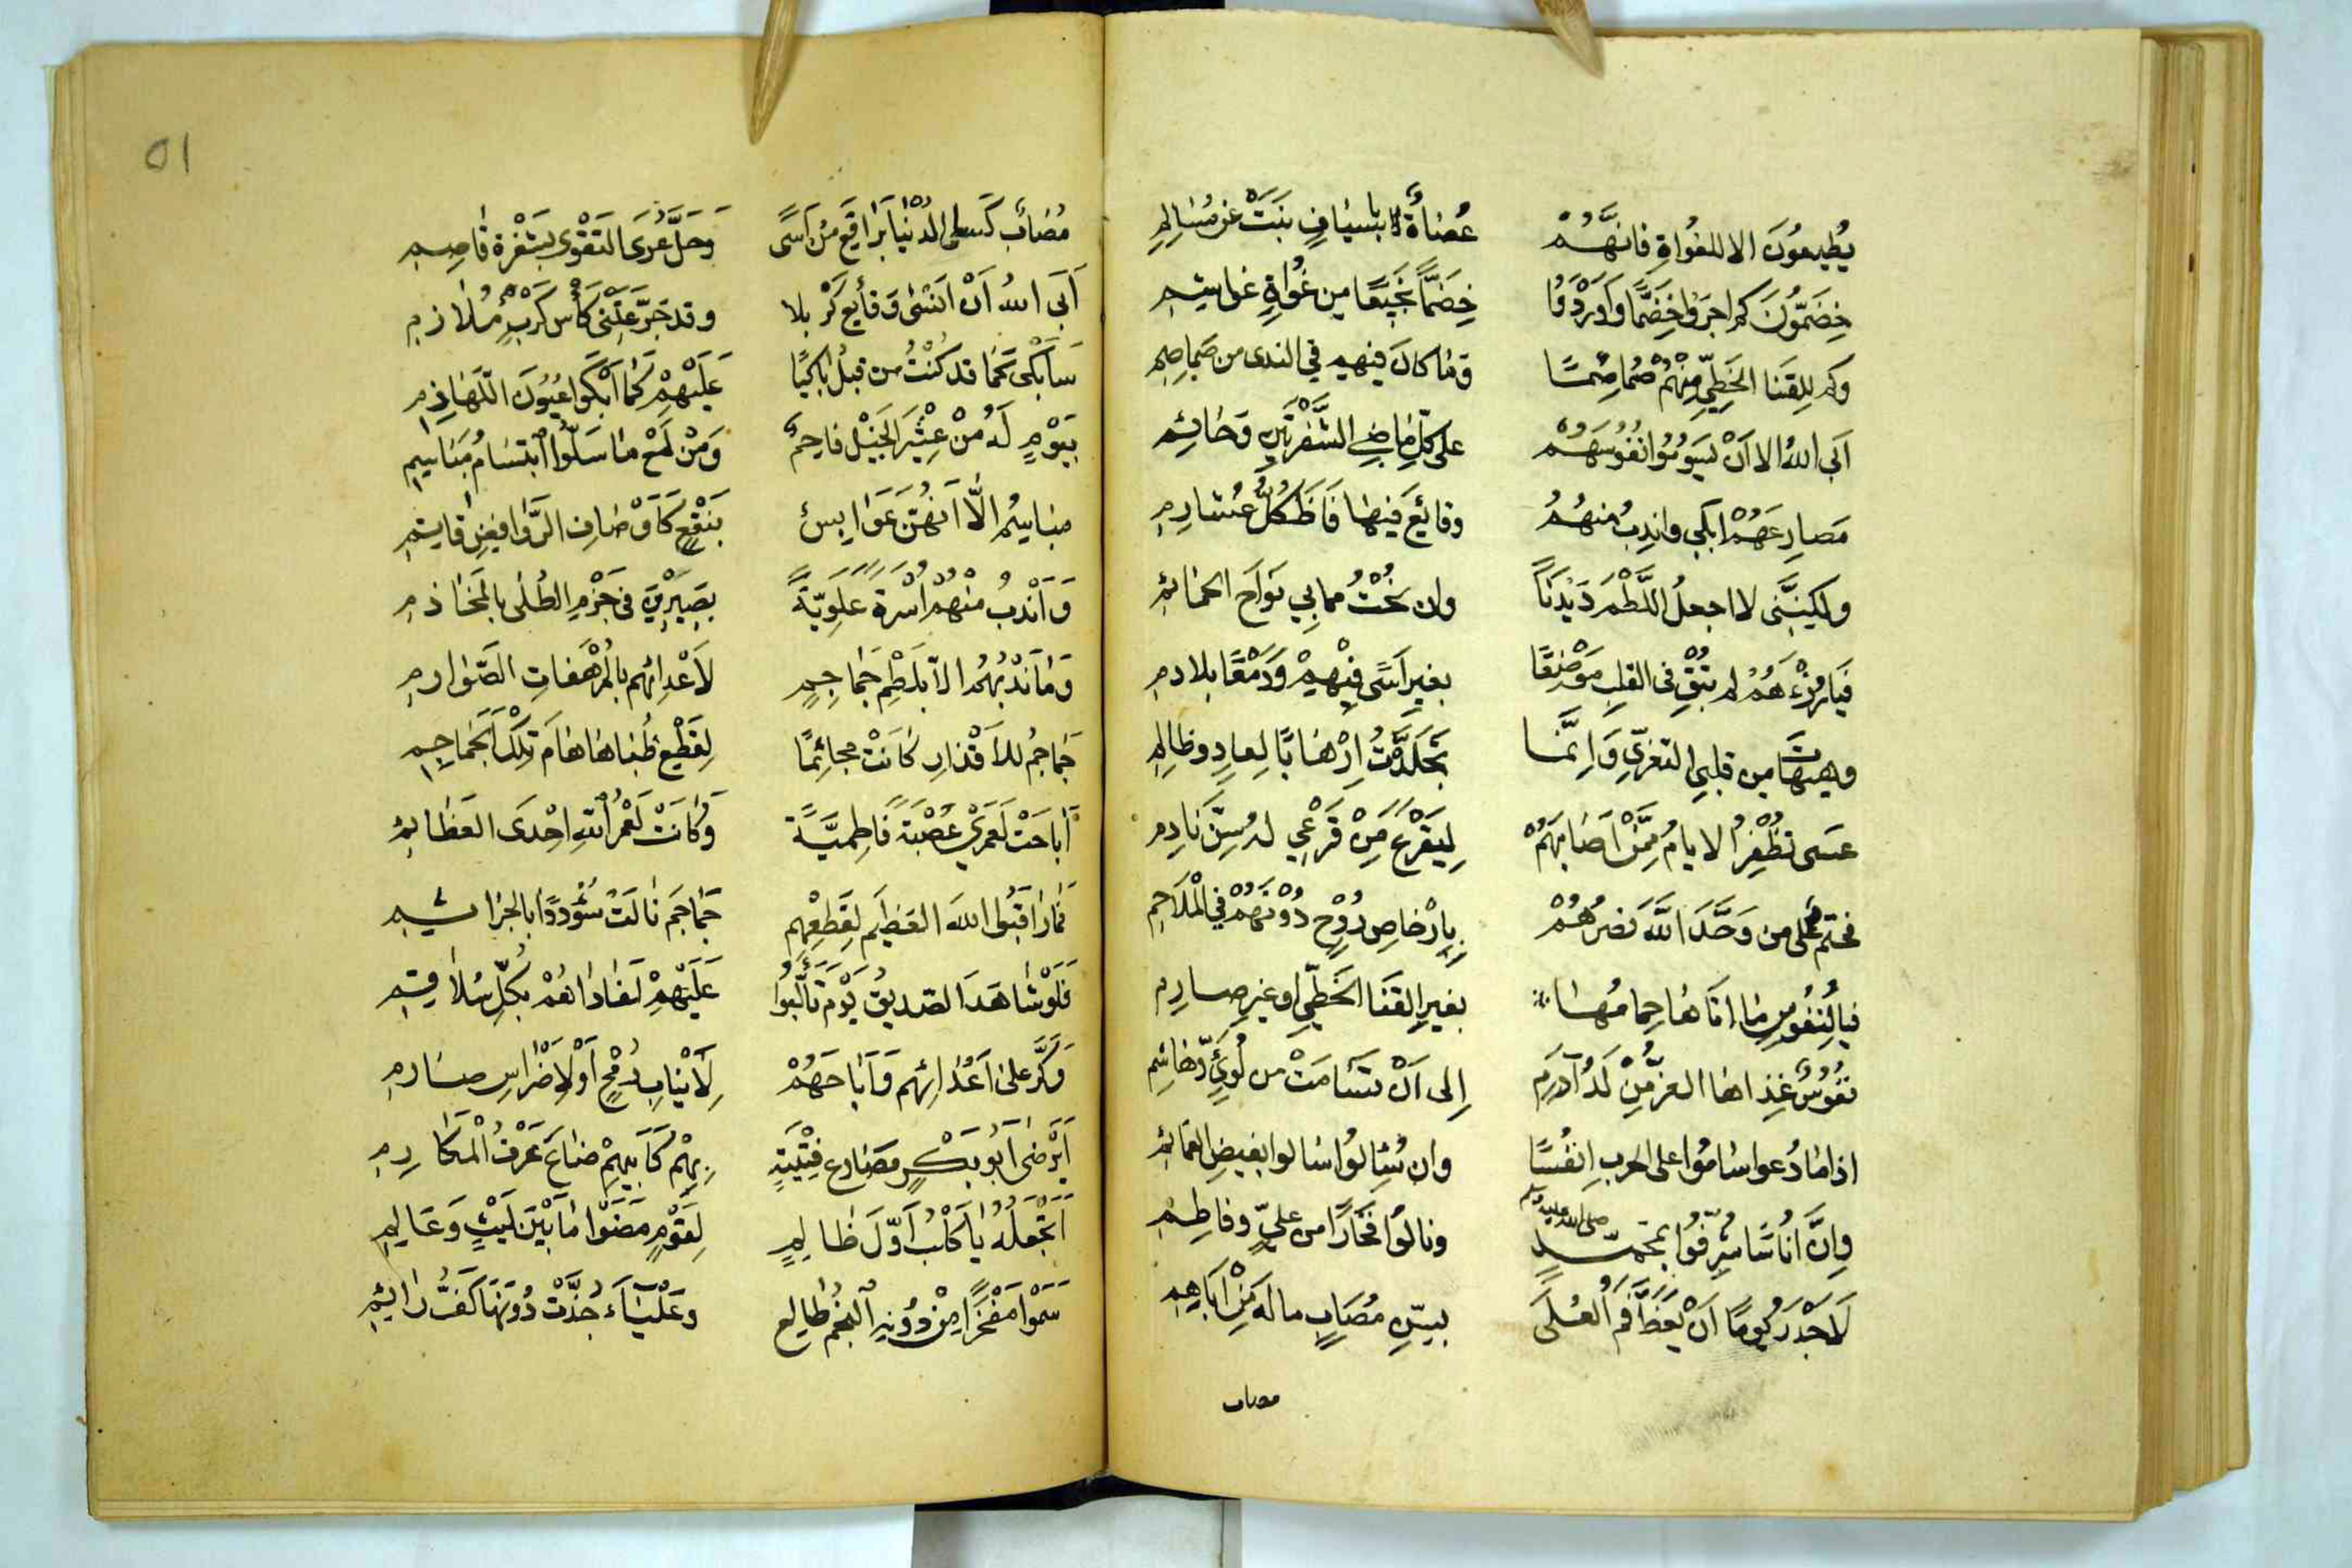 يُطِيعُونَ الا للغُواةِ فانَّهُمْ عُصَاةٌ لا بأسيَافٍ نَبَتْ عن مُسَالِمِ
خِضَمُّونَ كم اجرَوا خِضَمًّا وَاَوْرَدُوا خِضَمًّا نَجِيعًا مِن غُوَاةٍ غواشِمِ
وكم لِلقَنا الخَطِّيِّ مِنْهُمْ وَمَا كانَ فيهم في الندى من صَمَاصِمِ
اَبَى اللهُ الا اَنْ يَسُومُوا نُفُوسَهُمْ على كلِّ مَاضِي الشَّفْرَتَيْنِ وَحَائِمِ
مَصارِعَهُمْ ابكي واندِبُ مِنهُمُ وقائِعَ فيهَا فَاظَ كُلُّ عُشارِمِ
ولكِنَّنِي لا اجعلُ اللَّطْمَ دَيْدَنًا وان نُحْتُ مما بي نَوَاحَ الحمَائِمِ
فَيا رُزْءَهُمْ لم تُبْقِ في القلبِ مَوْضِعًا بغيرِ اَسًى فِيْهِمْ وَدَمْعًا بلادمِ
وهيهَاتَ من قلبي التعَزِّي وَاِنَّمَا تجَلَّدْتُ اِرْهَابًا لِعادٍ وظالِمِ
عَسى تظْفِرُ الايامُ مِمَّنْ اَصَابَهُمْ لِيَقْرَعَ مَنْ قَرْعِي له سِنَّ نَادِمِ
فحتم على من وَحَّدَ اللهَ نَصرُهُمْ بِاِرْخاصِ رُوْحٍ دُوْنَهُمْ في الْمَلَاحِمِ
فيا لِنُفُوسٍ ما اتَاهَا حِمامُها بغيرِ القَنَا الخَطِّي او غيرِ صارِمِ
نفُوسٌ غِذاها العِزُّ مِنْ لَدُ آدَمِ اِلى اَنْ تسَامَتْ من لُوَيٍّ وَهاشِمِ
اذا مَا دُعوا سَامُوا على الحربِ انفُسًا وان سُئِلُوا سَالوا بفَيضِ الغمَائِمِ
وِانَّ اُنَاسًا شُرِّفُوا بمُحَمَّدٍ صلى الله عليه وسلم ونالُوا فَخَارًا من عَلِيٍّ وفاطِمِ
لَاَجْدَرُ يومًا اَنْ يَعَظَّ فَمُ العُلَى بِسِنِّ مُصَابٍ ما لَهُ مَنْ
مصاب
01
مُصَابٌ كَسى الدُنْيَا بَرَاقِعَ مِنْ اَسًى وَحَلَّ عُرَى التقْوَى بشَفْرَة قَاصِمِ
اَبَى اللهُ اَنْ اَنسَى وَقَايِعَ كَرْبلا وقد جَرَّعَتْنِي كَأْسَ كَرْبٍ مُلَازِمِ
سَاَبْكي كَمَا قد كُنْتُ من قبلُ بَاكِيًا عَلَيْهِمْ كَمَا اَبْكَوا عُيُونَ اللَّهَاذِمِ
بيَوْمٍ لَهُ مِنْ عِثْيَرِ الخَيْلِ فَاحِمٌ وَمِنْ لَمْعِ مَا سَلُّوا ابْتِسَامُ مَبَاسِمِ
مبَاسِمُ الَّا اَنهُنَّ عَوَابِسٌ بنَقْعٍ كَاَوْصَافِ الرَّوَافِضِ قَاتِمِ
وَاَنْدُبُ مِنْهُمْ اُسْرَةً عَلَوِيّةً بصيرِينَ في جَزْمِ الطُلَى بالمَخَاذِمِ
وَمَا نَدْبُهُمُ الاّ بلَطْمِ جَمَاجِمٍ لاَعْدَائِهِم بالمُرْهَفَاتِ الصَّوَارِمِ
جَمَاجِمُ للاَقْذَارِ كَانَتْ مجاثِمًا لِقَطْعِ ظُبَاهَا هَامَ تِلْكَ الجَمَاجِمِ
اَبَاحَتْ لَعَمْرِي عُصْبَةً فَاطِمِيَّةً وَكَانَتْ لَعَمْرُ اللهِ اِحْدَى العَظَائِمِ
فمَا رَاقَبُوا اللهَ العَظِيم لِقَطْعِهِمِ جَمَاجِمَ نَالَتْ سُؤْدَدًا بالجَرَاشِمِ
فَلَوْ شَاهَدَ الصّديقُ يَوْمَ تَأَلَّبُوا عَلَيْهِمْ لفَادَاهُمْ بكُلِّ سُلَاقِمِ
وَكَرَّ عَلى اَعْدَائِهِم وَاَبَاحَهُمْ لِاَنْيَابِ رُمْحٍ اَوْ لِاَضْرَاسِ صارِمِ
اَيَرْضَى اَبُو بَكْرٍ مَصَارِعَ فِتْيَةٍ بِهِمْ كَاَبِيهِمْ ضَاعَ عَرْفُ الْمَكَارِمِ
اَتَجْعَلُهُ يَا كَلْبُ اَوَّلَ ظَالِمٍ لِقَوْمٍ مَضَوْا مَا بَيْنَ لَيْثٍ وَعَالِمِ
سَمَوْا مَفْخَرًا مِنْ دُوْنِهِ النَجْمُ طَالِع وَعَلْيَاءَ جُذَّتْ دُونَهَا كَفُّ رَائِمِ